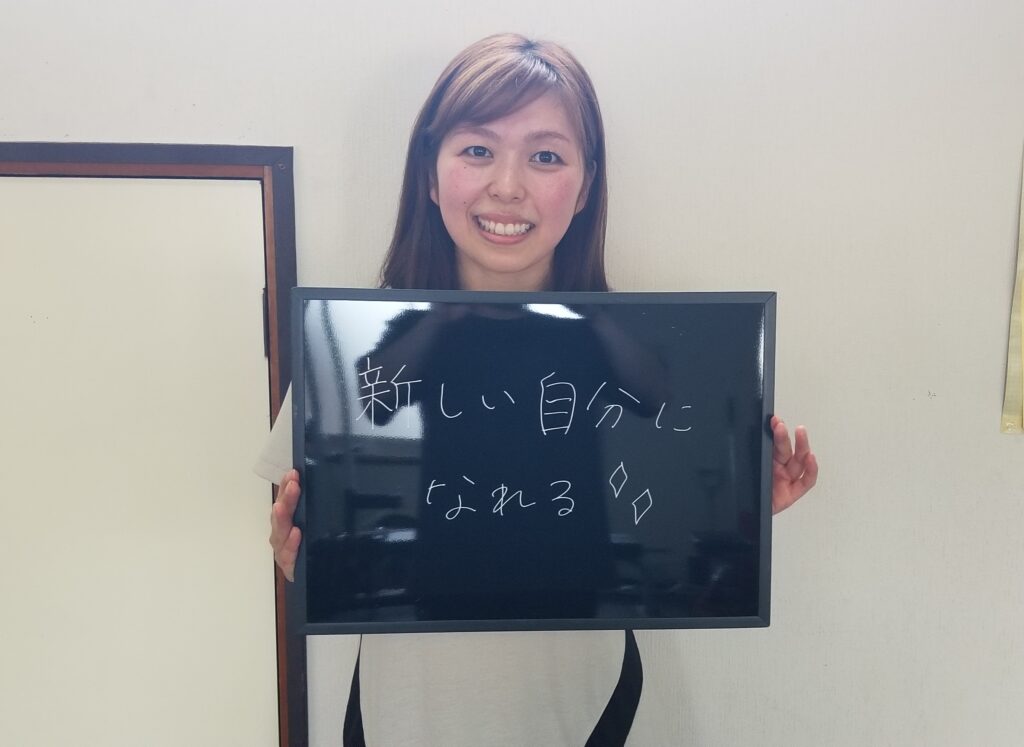 新しい自分に
なれる